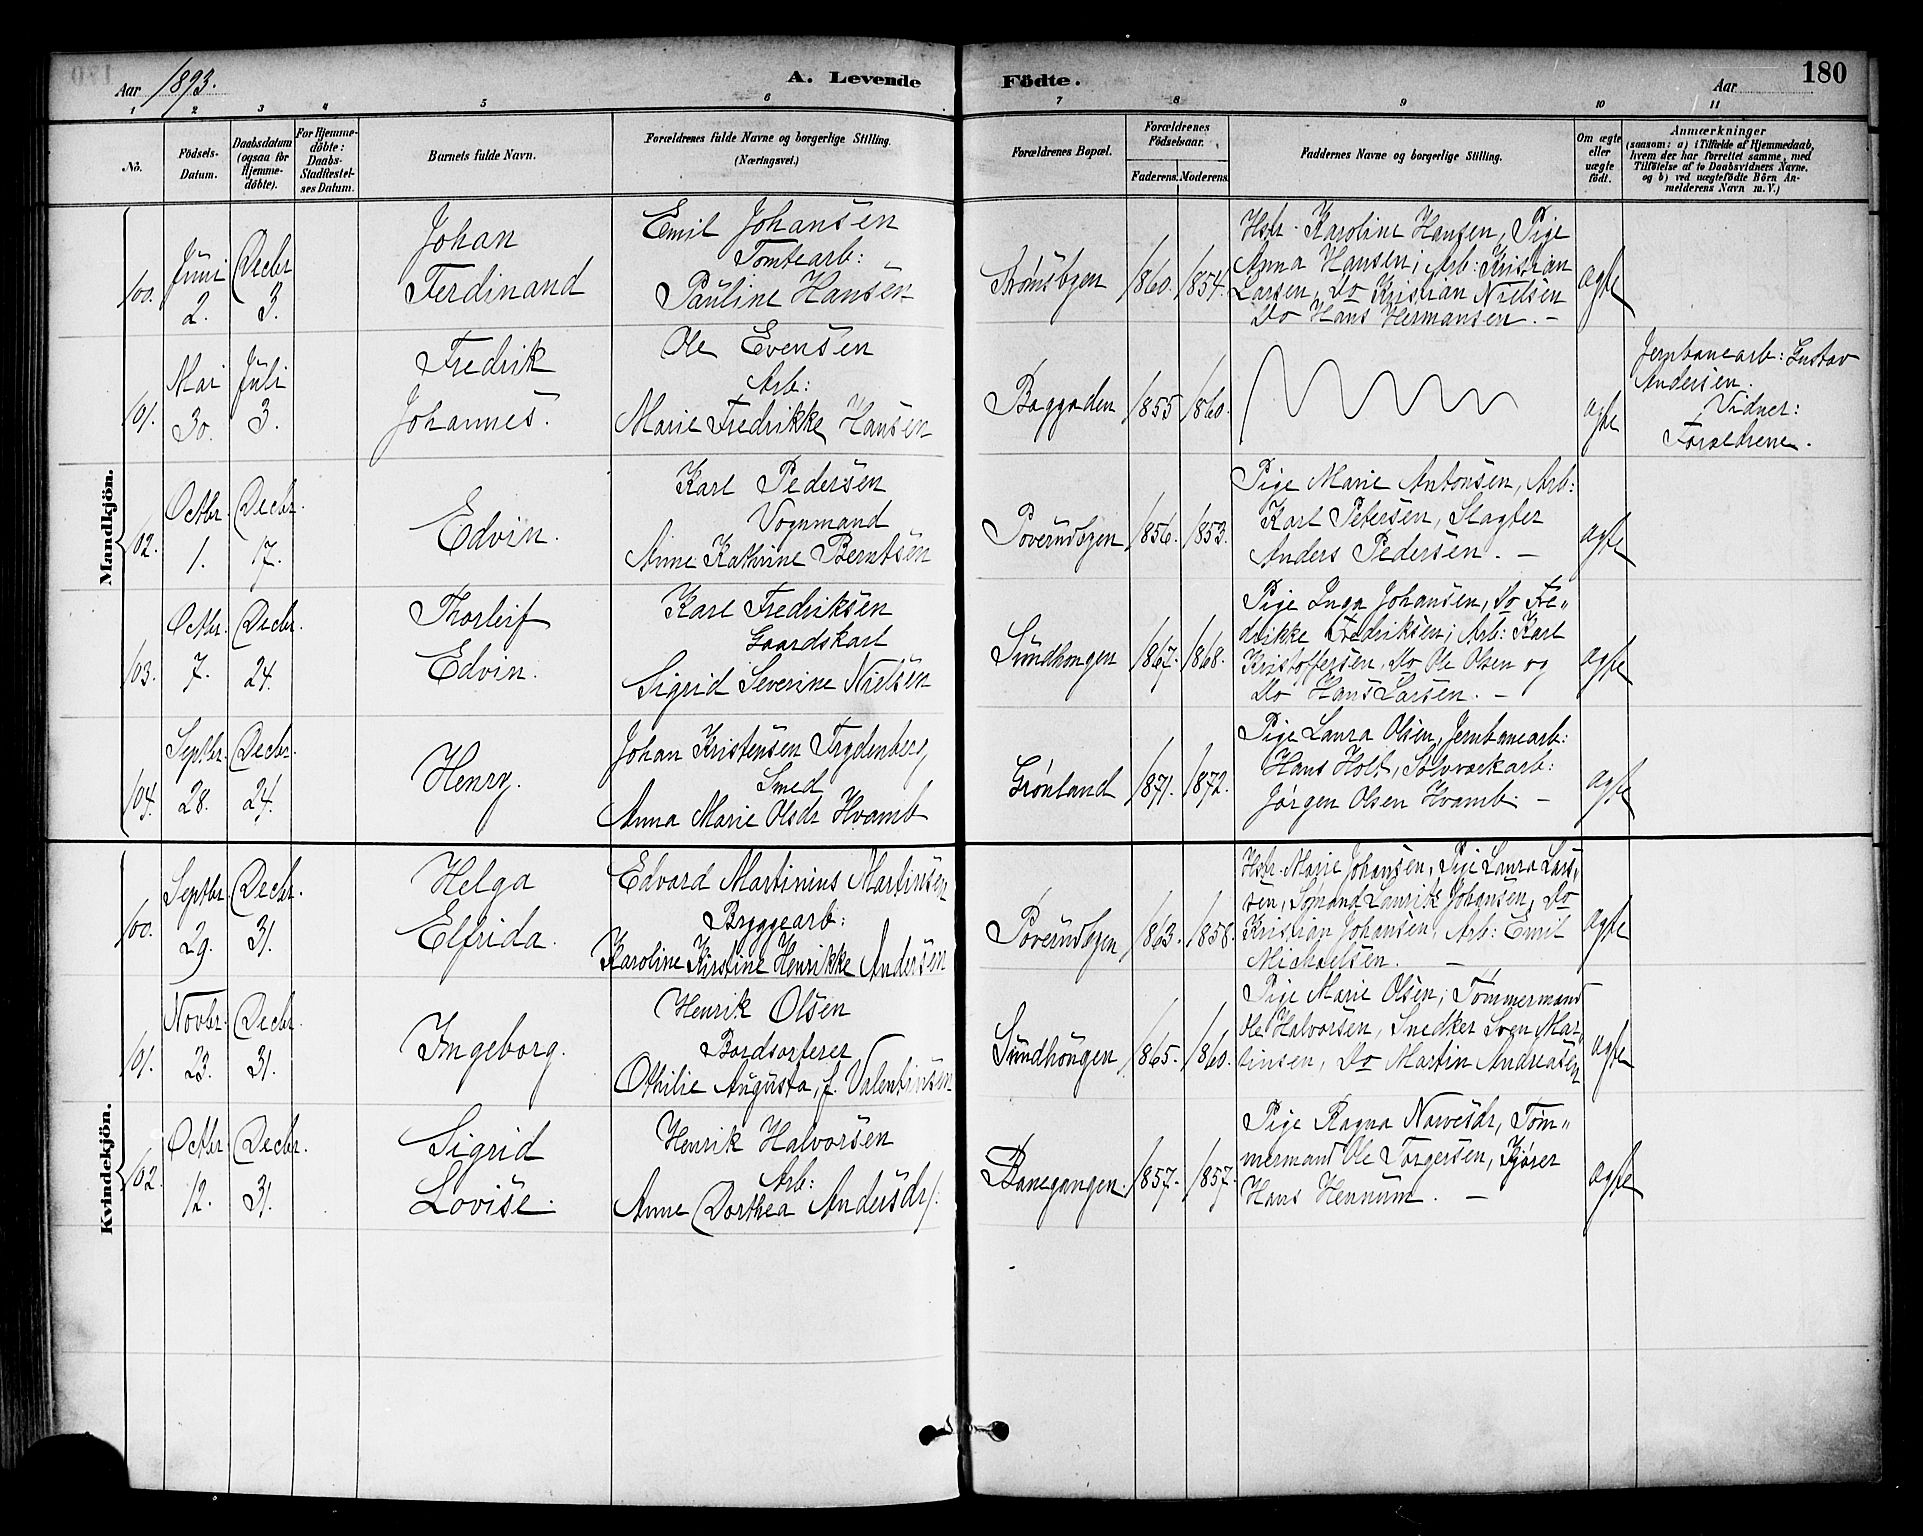 Aar 1893.
A. Levende
Födte.
Aar
180
1 2 3 4 5 6 7 8 9 10 11
No.
Födsels-
Datum.
Daabsdatum
(ogsaa for
Hjemme-
döbte).
For Hjemme-
döbte:
Daabs-
Stadfæstel-
ses Datum.
Barnets fulde Navn.
Forældrenes fulde Navne og borgerlige Stilling.
(Næringsvei.)
Forældrenes Bopæl.
Forældrenes
Födselsaar.
Faderens. Moderens.
Faddernes Navne og borgerlige Stilling.
Om ægte
eller
uægte
födt.
Anmærkninger
(saasom: a) i Tilfælde af Hjemmedaab,
hvem der har forrettet samme, med
Tilföielse af to Daabsvidners Navne,
og b) ved uægtefödte Börn An-
melderens Navn m. V.)
Mandkjön.
100.
Juni
2.
Decbr
3.
Johan
Ferdinand
Emil Johansen
Tomtearb:
Pauline Hansen
Strømsbgen
1860.
1854.
Hstr. Karoline Hansen, Pige
Anna Hansen; Arb: Kristian
Larsen, Do Kristian Nielsen
Do Hans Hermansen. -
ægte
101.
Mai
30.
Juli
3.
Fredrik
Johannes.
Ole Evensen
Arb:
Marie Fredrikke Hansen
Baggaden
1855
1860.
ægte
Jernbanearb: Gustav
Andersen.
Vidner:
Forældrene.
102.
Octbr.
1.
Decbr.
17.
Edvin.
Karl Pedersen
Vognmand
Anne Kathrine Berntsen
Poverudbgen
1856.
1853.
Pige Marie Antonsen, Arb:
Karl Petersen, Slagter
Anders Pedersen. -
ægte
103.
Octbr.
7.
Decbr.
24.
Thorleif
Edvin.
Karl Fredriksen
Gaardskarl
Sigrid Severine Nielsen
Sundhougen
1867.
1868.
Pige Inga Johansen, Do Fre„
drikke Fredriksen; Arb: Karl
Kristoffersen, Do Ole Olsen og
Do Hans Larsen. -
ægte
104.
Septbr.
28.
Decbr.
24.
Henry.
Johan Kristensen Frydenberg
Smed
Anna Marie Olsdr Hvamb
Grønland
1871.
1872.
Pige Laura Olsen, Jernbanearb:
Hans Holt, Sølvværkarb:
Jørgen Olsen Hvamb. -
ægte
Kvindekjön.
100.
Septbr.
29.
Decbr.
31.
Helga
Elfrida.
Edvard Martinius Martinsen
Bryggearb:
Karoline Kirstine Henrikke Andersen
Poverudbgen
1863.
1858.
Hstr. Marie Johansen, Pige Laura Lars„
sen, Sømand Laurits Johansen, Do
Kristian Johansen, Arb: Emil
Michaelsen. -
ægte
101.
Novbr.
23.
Decbr.
31.
Ingeborg.
Henrik Olsen
Bordsorterer
Othilie Augusta, f. Valentinsen
Sundhougen
1865.
1860.
Pige Marie Olsen; Tømmermand
Ole Halvorsen, Snedker Sven Mar„
tinsen, Do Martin Andreasen
ægte
102.
Octbr.
12.
Decbr.
31.
Sigrid
Lovise.
Henrik Halvorsen
Arb:
Anne Dorthea Andersdr
Banegangen.
1857.
1857.
Pige Ragna Narvesdr, Tøm„
mermand Ole Torgersen, Kjører
Hans Hennum. -
ægte